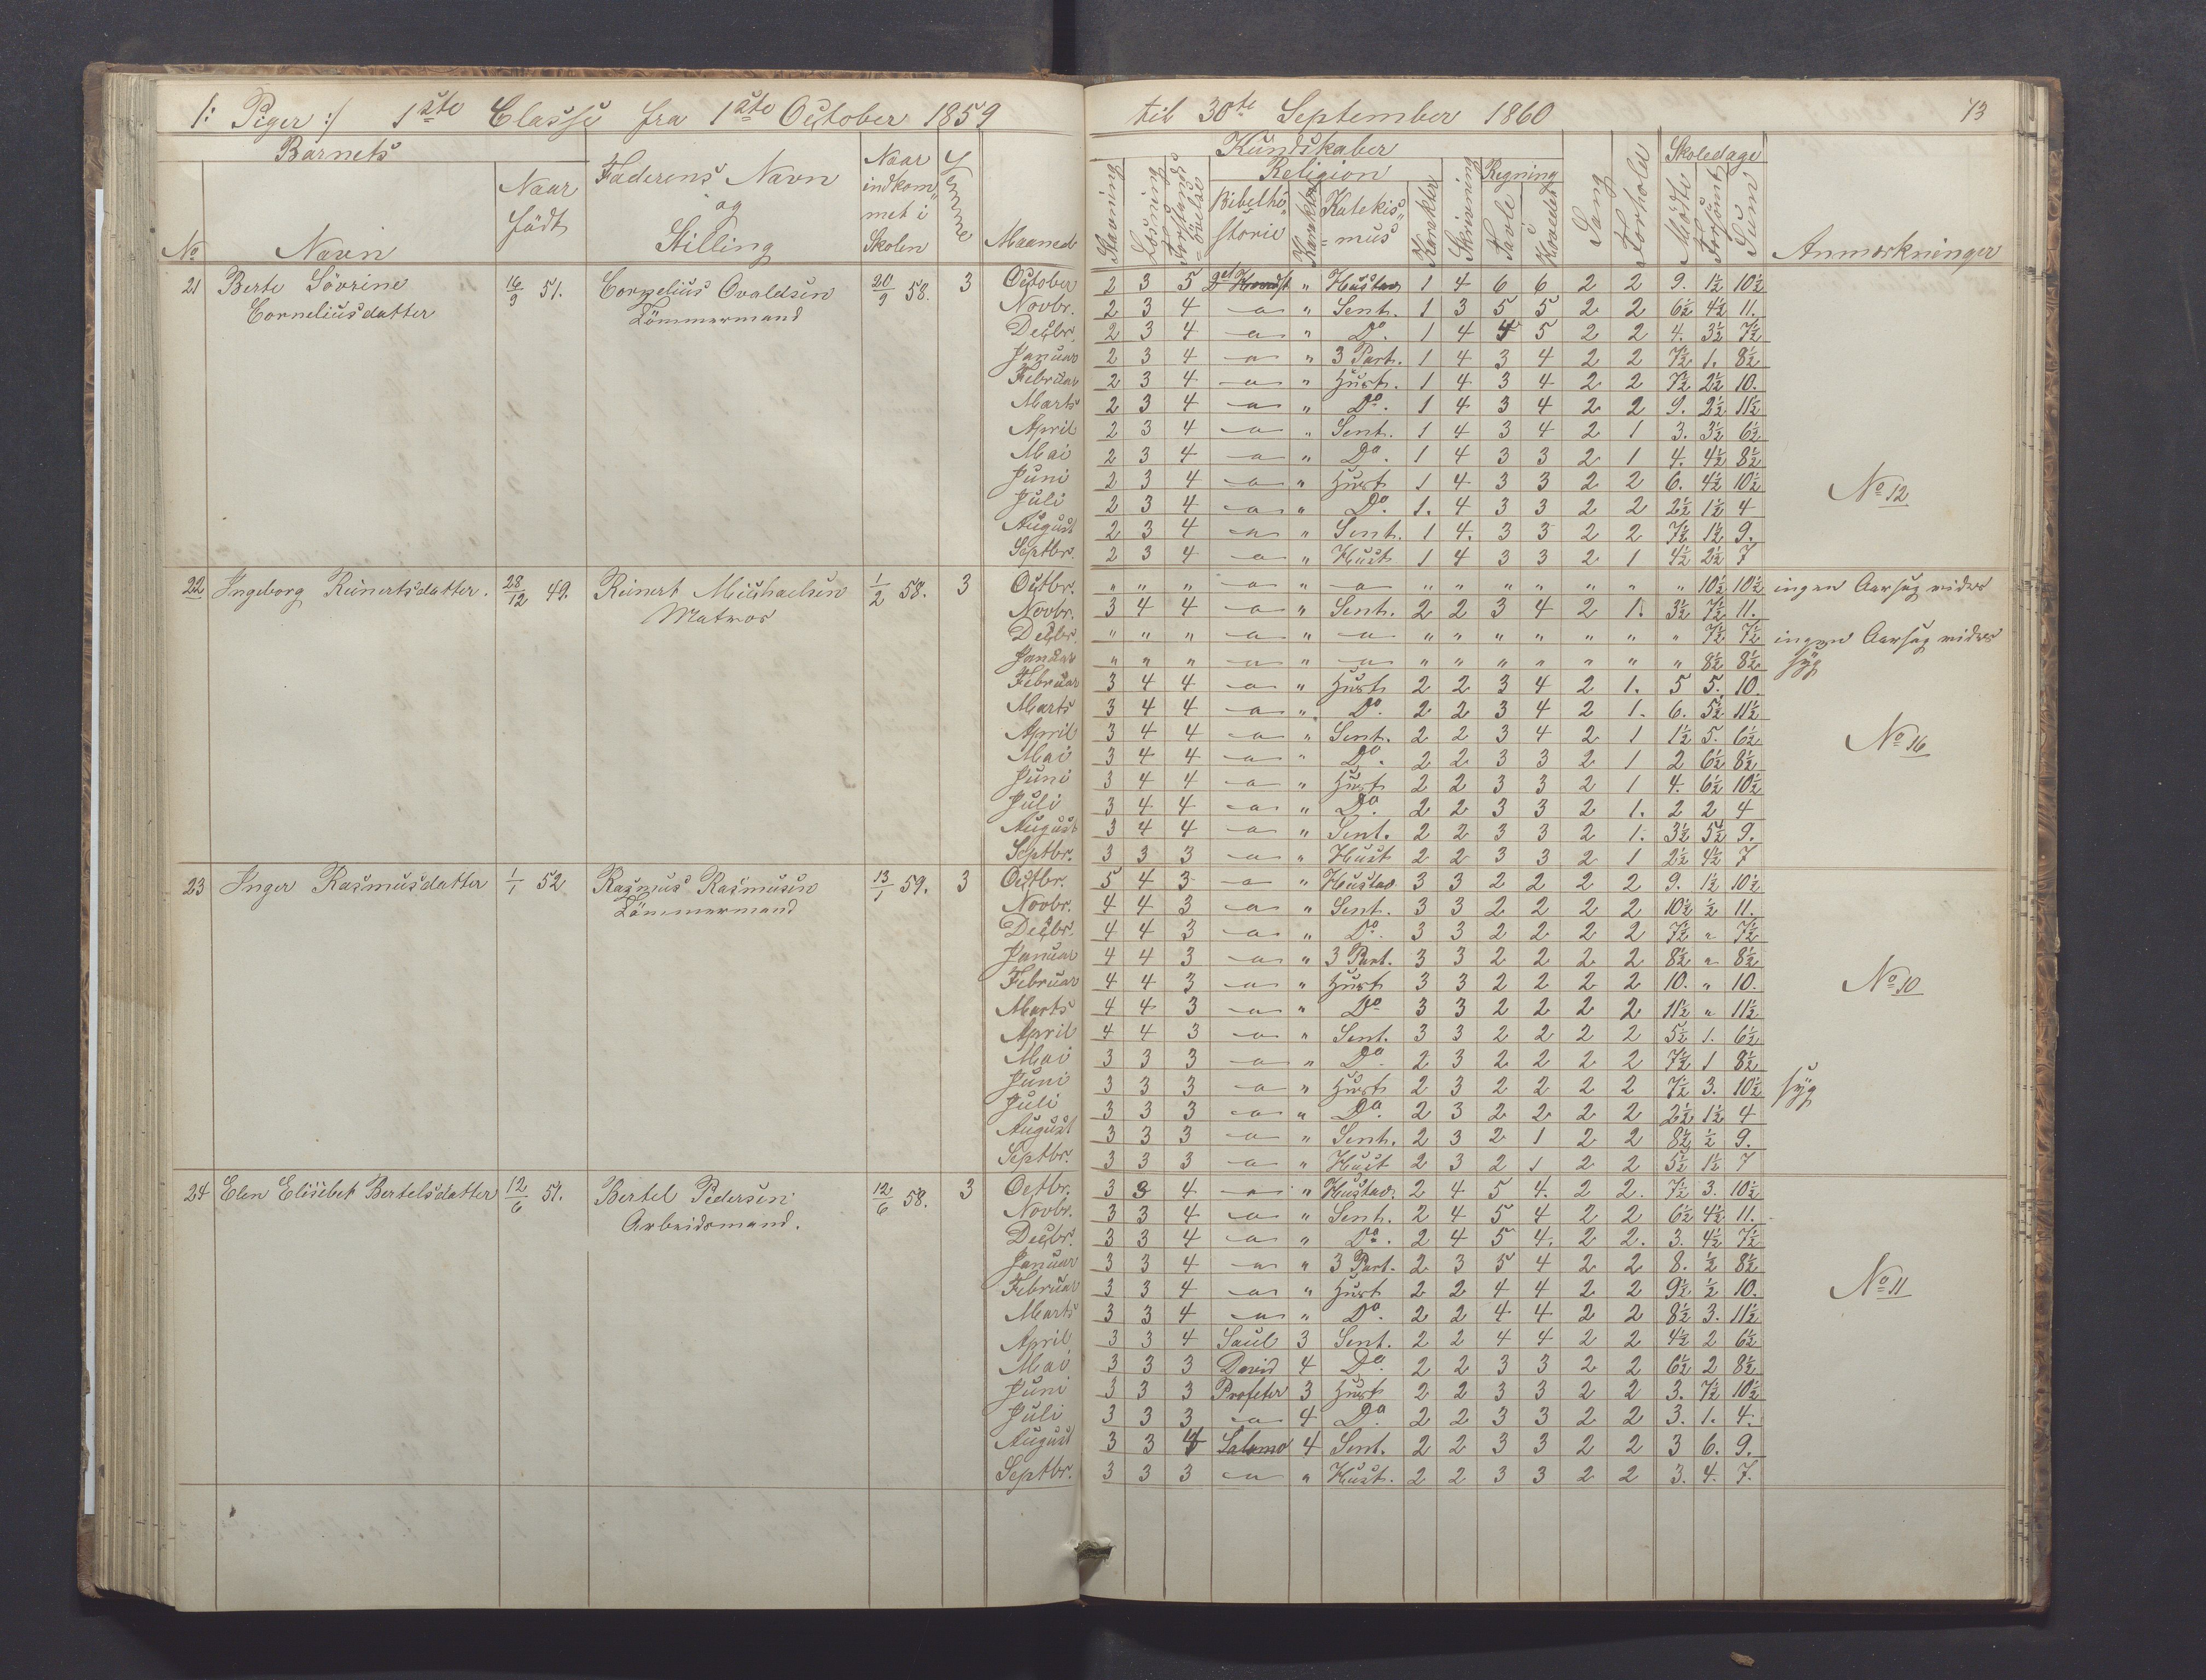 /: Piger :/ 1ste Classe fra 1ste October 1859 til 30te September 1860 13
Barnets
No Navn
Naar født
Faderens Navn og Stilling
Naar indkom„ met i Skolen
Maaned
Kundskaber
Stavning Læsning
Religion
Bibelhi„ storie Karakter Katekis„ =mus Karakter
Skrivning
Regning
Tavle Hoved
Sang Forhold
Skoledage
Mødte Forsømt Sum
Anmærkninger
21 Berte Sövrine Corneliusdatter 16/9 51. Cornelius Ovaldsen Tömmermand 20/9 58. 3
October 2 3 5 " Hustav 1 4 6 6 2 2 9. 1½ 10½
Novbr. 2 3 4 -a- " Sent. 1 3 5 5 2 2 6½ 4½ 11.
Decbr. 2 3 4 -a- " Do. 1 4 4 5 2 2 4. 3½ 7½
Januar 2 3 4 -a- " 3 Part. 1 4 3 4 2 2 7½ 1. 8½
Februar 2 3 4 -a- " Hust. 1 4 3 4 2 2 7½ 2½ 10.
Marts 2 3 4 -a- " Do. 1 4 3 4 2 2 9. 2½ 11½
April 2 3 4 -a- " Sent. 1 4 3 4 2 1 3. 3½ 6½
Mai 2 3 4 -a- " Do. 1 4 3 3 2 1 4. 4½ 8½
Juni 2 3 4 -a- " Hust 1 4 3 3 2 2 6. 4½ 10½ No 12
Juli 2 3 4 -a- " Do. 1. 4 3 3 2 2 2½ 1½ 4
August 2 3 4 -a- " Sent. 1 4. 3 3 2 2 7½ 1½ 9.
Septbr. 2 3 4 -a- " Hust 1 4 3 3 2 1 4½ 2½ 7
22 Ingeborg Reinertsdatter. 28/12 49. Reinert Michaelsen Matros 1/2 58. 3
Octbr. " " " -a- " -a- " " " " " " " 10½ 10½ ingen Aarsag vides
Novbr. 3 4 4 -a- " Sent. 2 2 3 4 2 1. 3½ 7½ 11.
Decbr. " " " -a- " -a- " " " " " " " 7½ 7½ ingen Aarsag vides
Januar " " " -a- " -a- " " " " " " " 8½ 8½ syg
Februar 3 4 4 -a- " Hust 2 2 3 4 2 1. 5 5. 10.
Marts 3 4 4 -a- " Do. 2 2 3 4 2 1. 6. 5½ 11½
April 3 4 4 -a- " Sent. 2 2 3 4 2 1 1½ 5. 6½ No 16
Mai 3 4 4 -a- " Do. 2 2 3 3 2 1 2 6½ 8½
Juni 3 4 4 -a- " Hust 2 2 3 3 2 1 4. 6½ 10½
Juli 3 4 4 -a- " Do 2 2 3 3 2 1. 2 2 4
August 3 4 4 -a- " Sent. 2 2 3 3 2 1. 3½ 5½ 9.
Septbr. 3 3 3 -a- " Hust 2 2 3 3 2 1 2½ 4½ 7
23 Inger Rasmusdatter 1/1 52 Rasmus Rasmusen Tömmermand 13/1 59. 3
Octbr. 5 4 3 -a- " Hustav 3 3 2 2 2 2 9. 1½ 10½
Novbr. 4 4 3 -a- " Sent. 3 3 2 2 2 2 10½ ½ 11.
Decbr. 4 4 3 -a- " Do. 3 3 2 2 2 2 7½ " 7½
Januar 4 4 3 -a- " 3 Part. 3 3 2 2 2 2 8½ " 8½
Februar 4 4 3 -a- " Hust 3 3 2 2 2 2 10. " 10. No 10
Marts 4 4 3 -a- " Do 3 3 2 2 2 2 11½ " 11½
April 4 4 3 -a- " Sent. 3 3 2 2 2 2 5½ 1. 6½
Mai 3 3 3 -a- " Do. 2 3 2 2 2 2 7½ 1 8½
Juni 3 3 3 -a- " Hust 2 3 2 2 2 2 7½ 3. 10½ syg
Juli 3 3 3 -a- " Do. 2 3 2 2 2 2 2½ 1½ 4
August 3 3 3 -a- " Sent. 2 3 2 1 2 2 8½ ½ 9.
Septbr. 3 3 3 -a- " Hust 2 3 2 1 2 2 5½ 1½ 7
24 Elen Elisebet Bertelsdatter 12/6 51. Bertel Pedersen Arbeidsmand. 12/6 58. 3
Octbr. 3 3 4 -a- " Hustav. 2 4 5 4. 2 2. 7½ 3. 10½
Novbr. 3 3 4 -a- " Sent. 2 4 5 4 2 2 6½ 4½ 11.
Decbr. 3 3 4 -a- " Do. 2 4 5 4. 2 2. 3. 4½ 7½
Januar 3 3 4 -a- " 3 Part. 2 3 5 4 2 2 8. ½ 8½
Februar 3 3 4 -a- " Hust 2 2 4 4 2 2 9½ ½ 10. No 11
Marts 3 3 4 -a- " Do. 2 2 4 4 2 2 8½ 3. 11½
April 3 3 4 Saul 3 Sent. 2 2 4 4 2 2 4½ 2 6½
Mai 3 3 3 David 4 Do. 2 2 3 3 2 2 6½ 2 8½
Juni 3 3 3 Profeter 3 Hust 2 2 3 3 2 2 3. 7½ 10½
Juli 3 3 3 -a- 4 Do. 2 2 3 3 2 2 3. 1. 4.
August 3 3 4 Salomo 4 Sent. 2 2 3 3 2 2 3 6. 9.
Septbr. 3 3 3 -a- " Hust. 2 2 3 3 2 2 3. 4. 7.